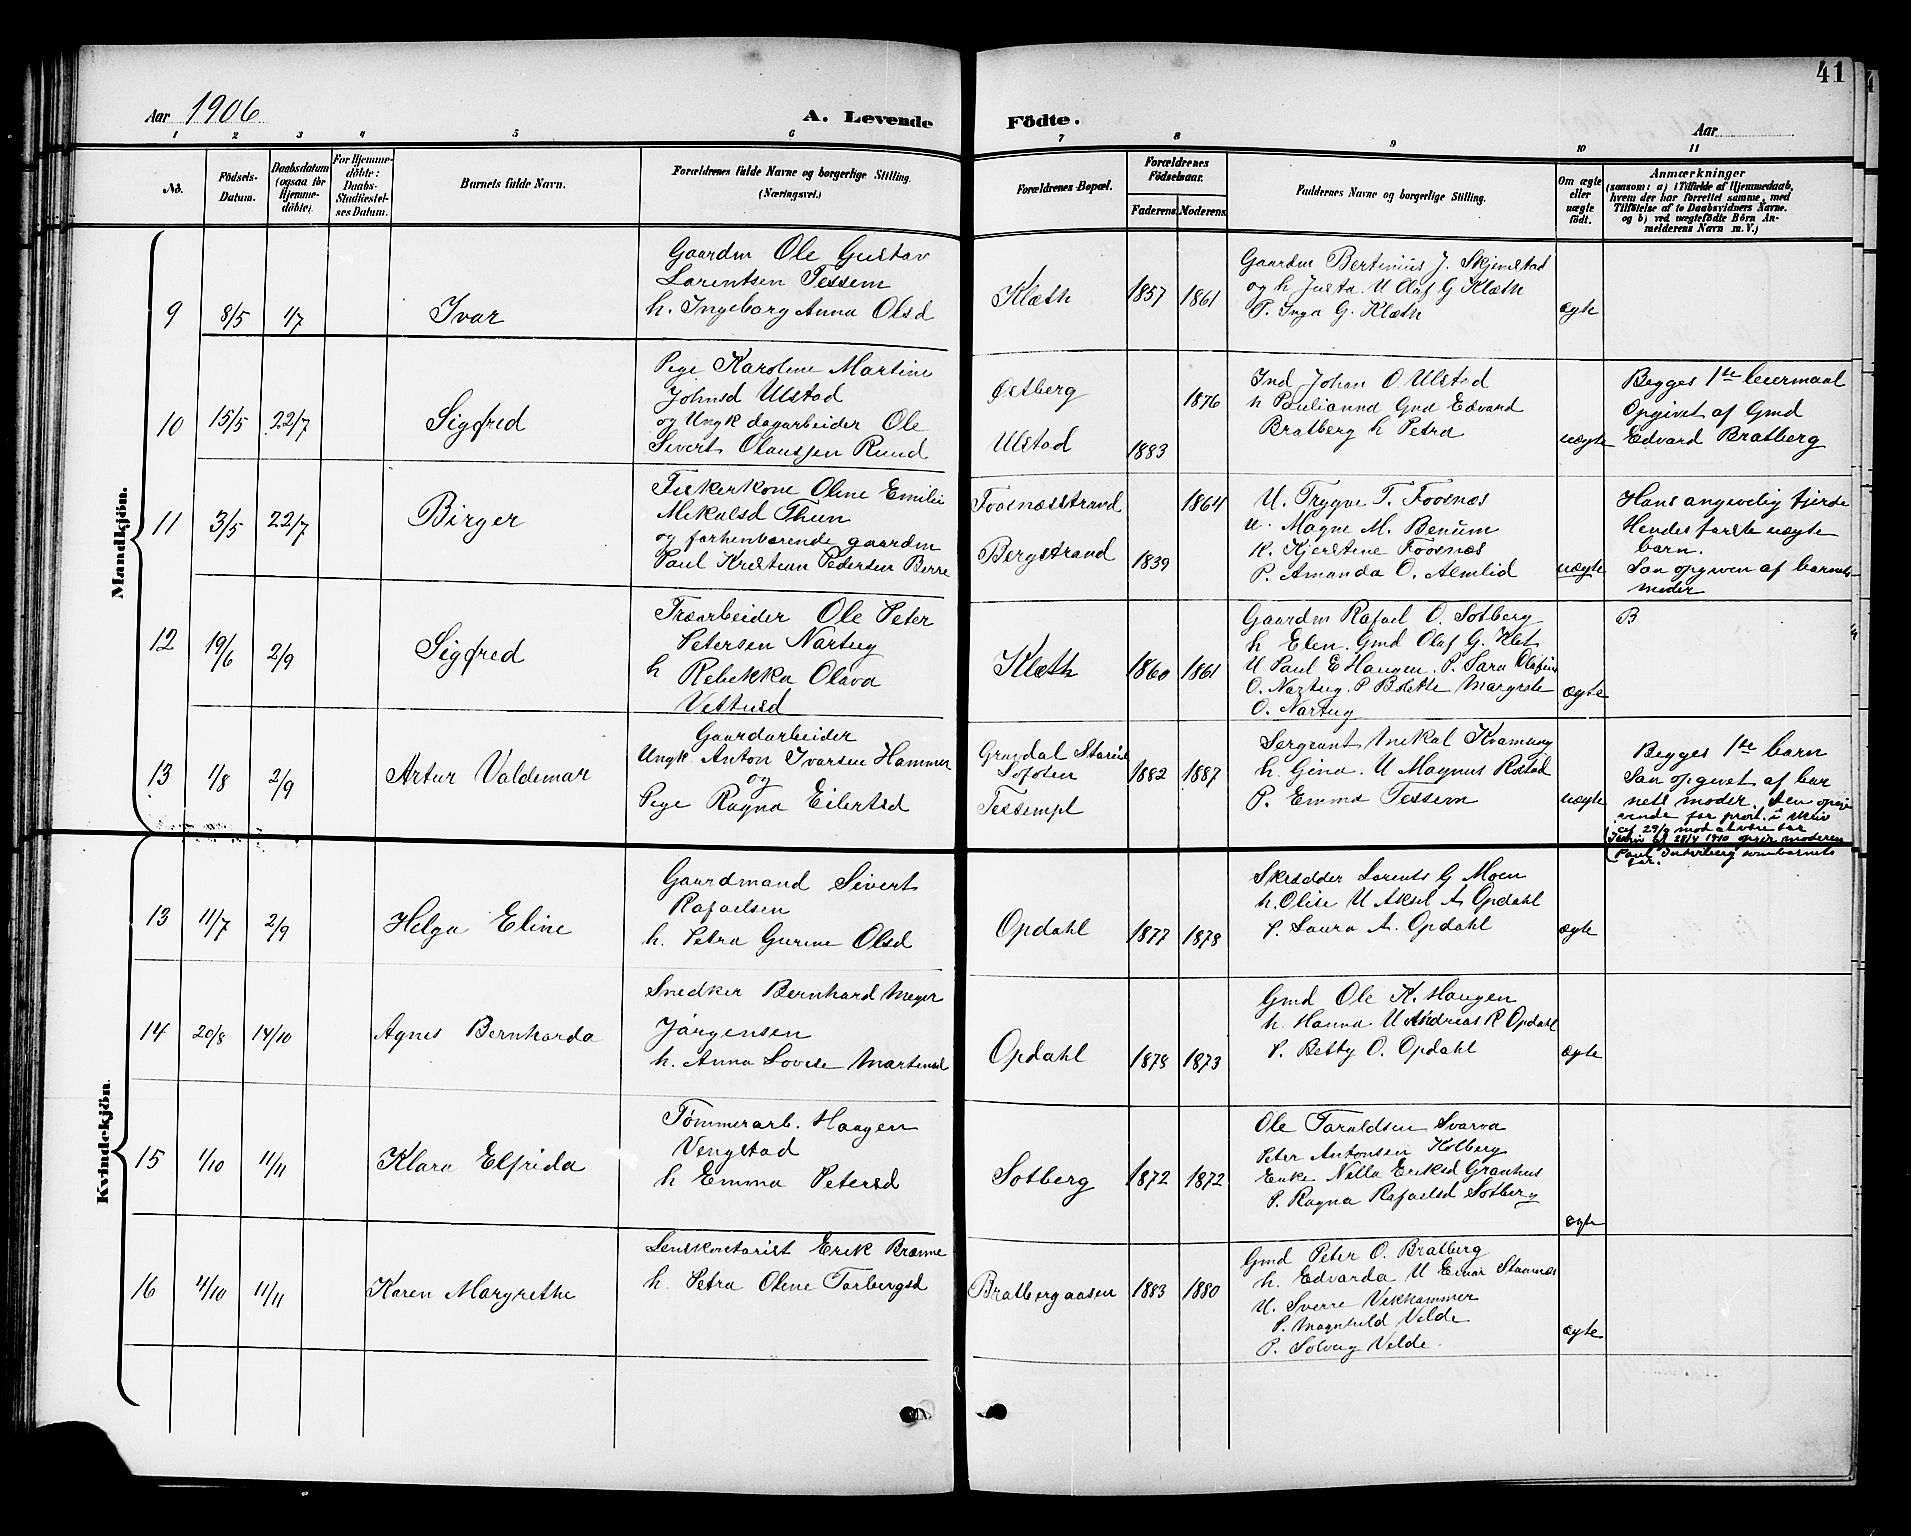 41
Aar 1906
A. Levende
Födte.
Aar
1 2 3 4 5 6 7 8 9 10 11
No.
Födsels-
Datum.
Daabsdatum
(ogsaa for
Hjemme-
döbte)
For Hjemme-
döbte:
Daabs-
Stadfæstel-
ses Datum.
Barnets fulde Navn.
Forældrenes fulde Navne og borgerlige Stilling.
(Næringsvei.)
Forældrenes Bopæl.
Forældrenes
Födselsaar.
Faderens
Moderens
Faddernes Navne og borgerlige Stilling.
Om ægte
eller
uægte
födt.
Anmærkninger
(saasom: a) i Tilfælde af Hjemmedaab,
hvem der har forrettet samme, med
Tilföielse af to Daabsvidners Navne.
og b) ved uægtefödte Börn An-
melderens Navn m. V.)
Mandkjön.
9 8/5 1/7 Ivar
Gaardm Ole Gustav
Lorentsen Tessem
h. Ingeborg Anna Olsd
Klæth 1857 1861
Gaardm Bertinius J. Skjerstad
og h Justa. U Olaf G Klæth
P. Inga G. Klæth
ægte
10 15/5 22/7 Sigfred
Pige Karoline Martine
Johnsd Ulstad
og Ungk dagarbeider Ole
Sivert Olaussen Rund
Østberg 1876
Ulstad 1883
Ind Johan O. Ulstad
h Paulianna Gmd Edvard
Bratberg h Petra
uægte
Begges 1ste leiermaal
Opgivet af Gmd
Edvard Bratberg
11 3/5 22/7 Birger
Fiskerkone Oline Emilie
Mikalsd Thun
og forhenværende gaardm
Paul Kristian Pedersen Berre
Foosnæsstrand 1864
Bergstrand 1839
U. Trygve T. Foosnæs
U. Magne M. Benum
K. Kjerstine Foosnæs
P. Amanda O. Almlid
uægte
Hans angivelig fjerde
Hendes første uægte
barn.
Saa opgiven af barnets
moder
12 19/6 2/9 Sigfred
Træarbeider Ole Peter
Petersen Nartug
h Rebekka Olava
Vettusd
Klæth 1860 1861
Gaardm Rafael O. Sotberg
h Elen. Gmd Olaf G. Klet
U Paul E Haugen. P. Sara Olafine
O. Nartug. P Bolette Margrete
O. Nartug
ægte
B
13 1/8 2/9 Artur Valdemar
Gaardarbeider
Ungk. Anton Ivarsen Hammer
og
Pige Ragna Eilertsd
Gravdal
Lofoten 1882 1887
Tessempl
Sergeant Mikal Kvamung
h. Gina. U Magnus Rostad
P. Emma Tessem
uægte
Begges 1ste barn
Saa opgivet af bar
nets moder. Den opgi
vende far prot. i skriv
af 29/9 mod at være far
28/4 1910 opgir moderen
Paul som barnets
far.
Kvindekjön.
13 11/7 2/9 Helga Eline
Gaardmand Sivert
Rafaelsen
h. Petra Gurine Olsd
Opdahl 1877 1878
Skrædder Lorents G Moen
h. Olise U Aksel A Opdahl
P. Laura A. Opdahl
ægte
14 20/8 14/10 Agnes Bernharda
Snedker Bernhard Meyer
Jørgensen
h. Anna Lovise Martinsd
Opdahl 1878 1873
Gmd Ole K. Haugen
h. Hanna U Andreas R Opdahl
P. Betty O. Opdahl
ægte
15 1/10 11/11 Klara Elfrida
Tømmerarb. Haagen
Vengstad
h Emma Petersd
Sotberg 1872 1872
Ole Taraldsen Svarva
Peter Antonsen Kolberg
Enke Nella Eriksd Granhus
P. Ragna Rafaelsd Sotberg
ægte
16 4/10 11/11 Karen Margrethe
Lenskontorist Erik Brænne
h. Petra Oline Torbergsd
Bratbergaasen 1883 1880
Gmd Peter O. Bratberg
h. Edvarda U Einar Staanæs
U. Sverre Vekhammer
P. Magnhild Velde
P. Solveig Velde
ægte